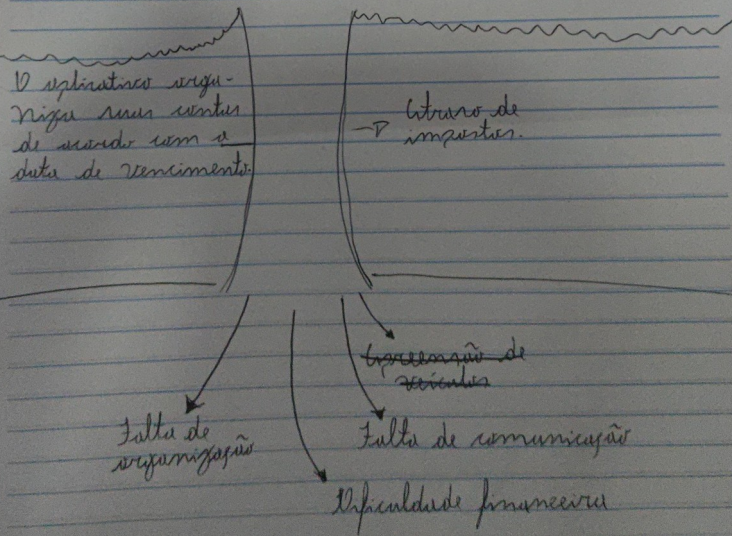 O aplicativo orga-
niza suas contas
de acordo com a
data de vencimento.
→ Atraso de
impostos.
Apreensão de
veículos
Falta de
organização
Falta de comunicação
Dificuldade financeira